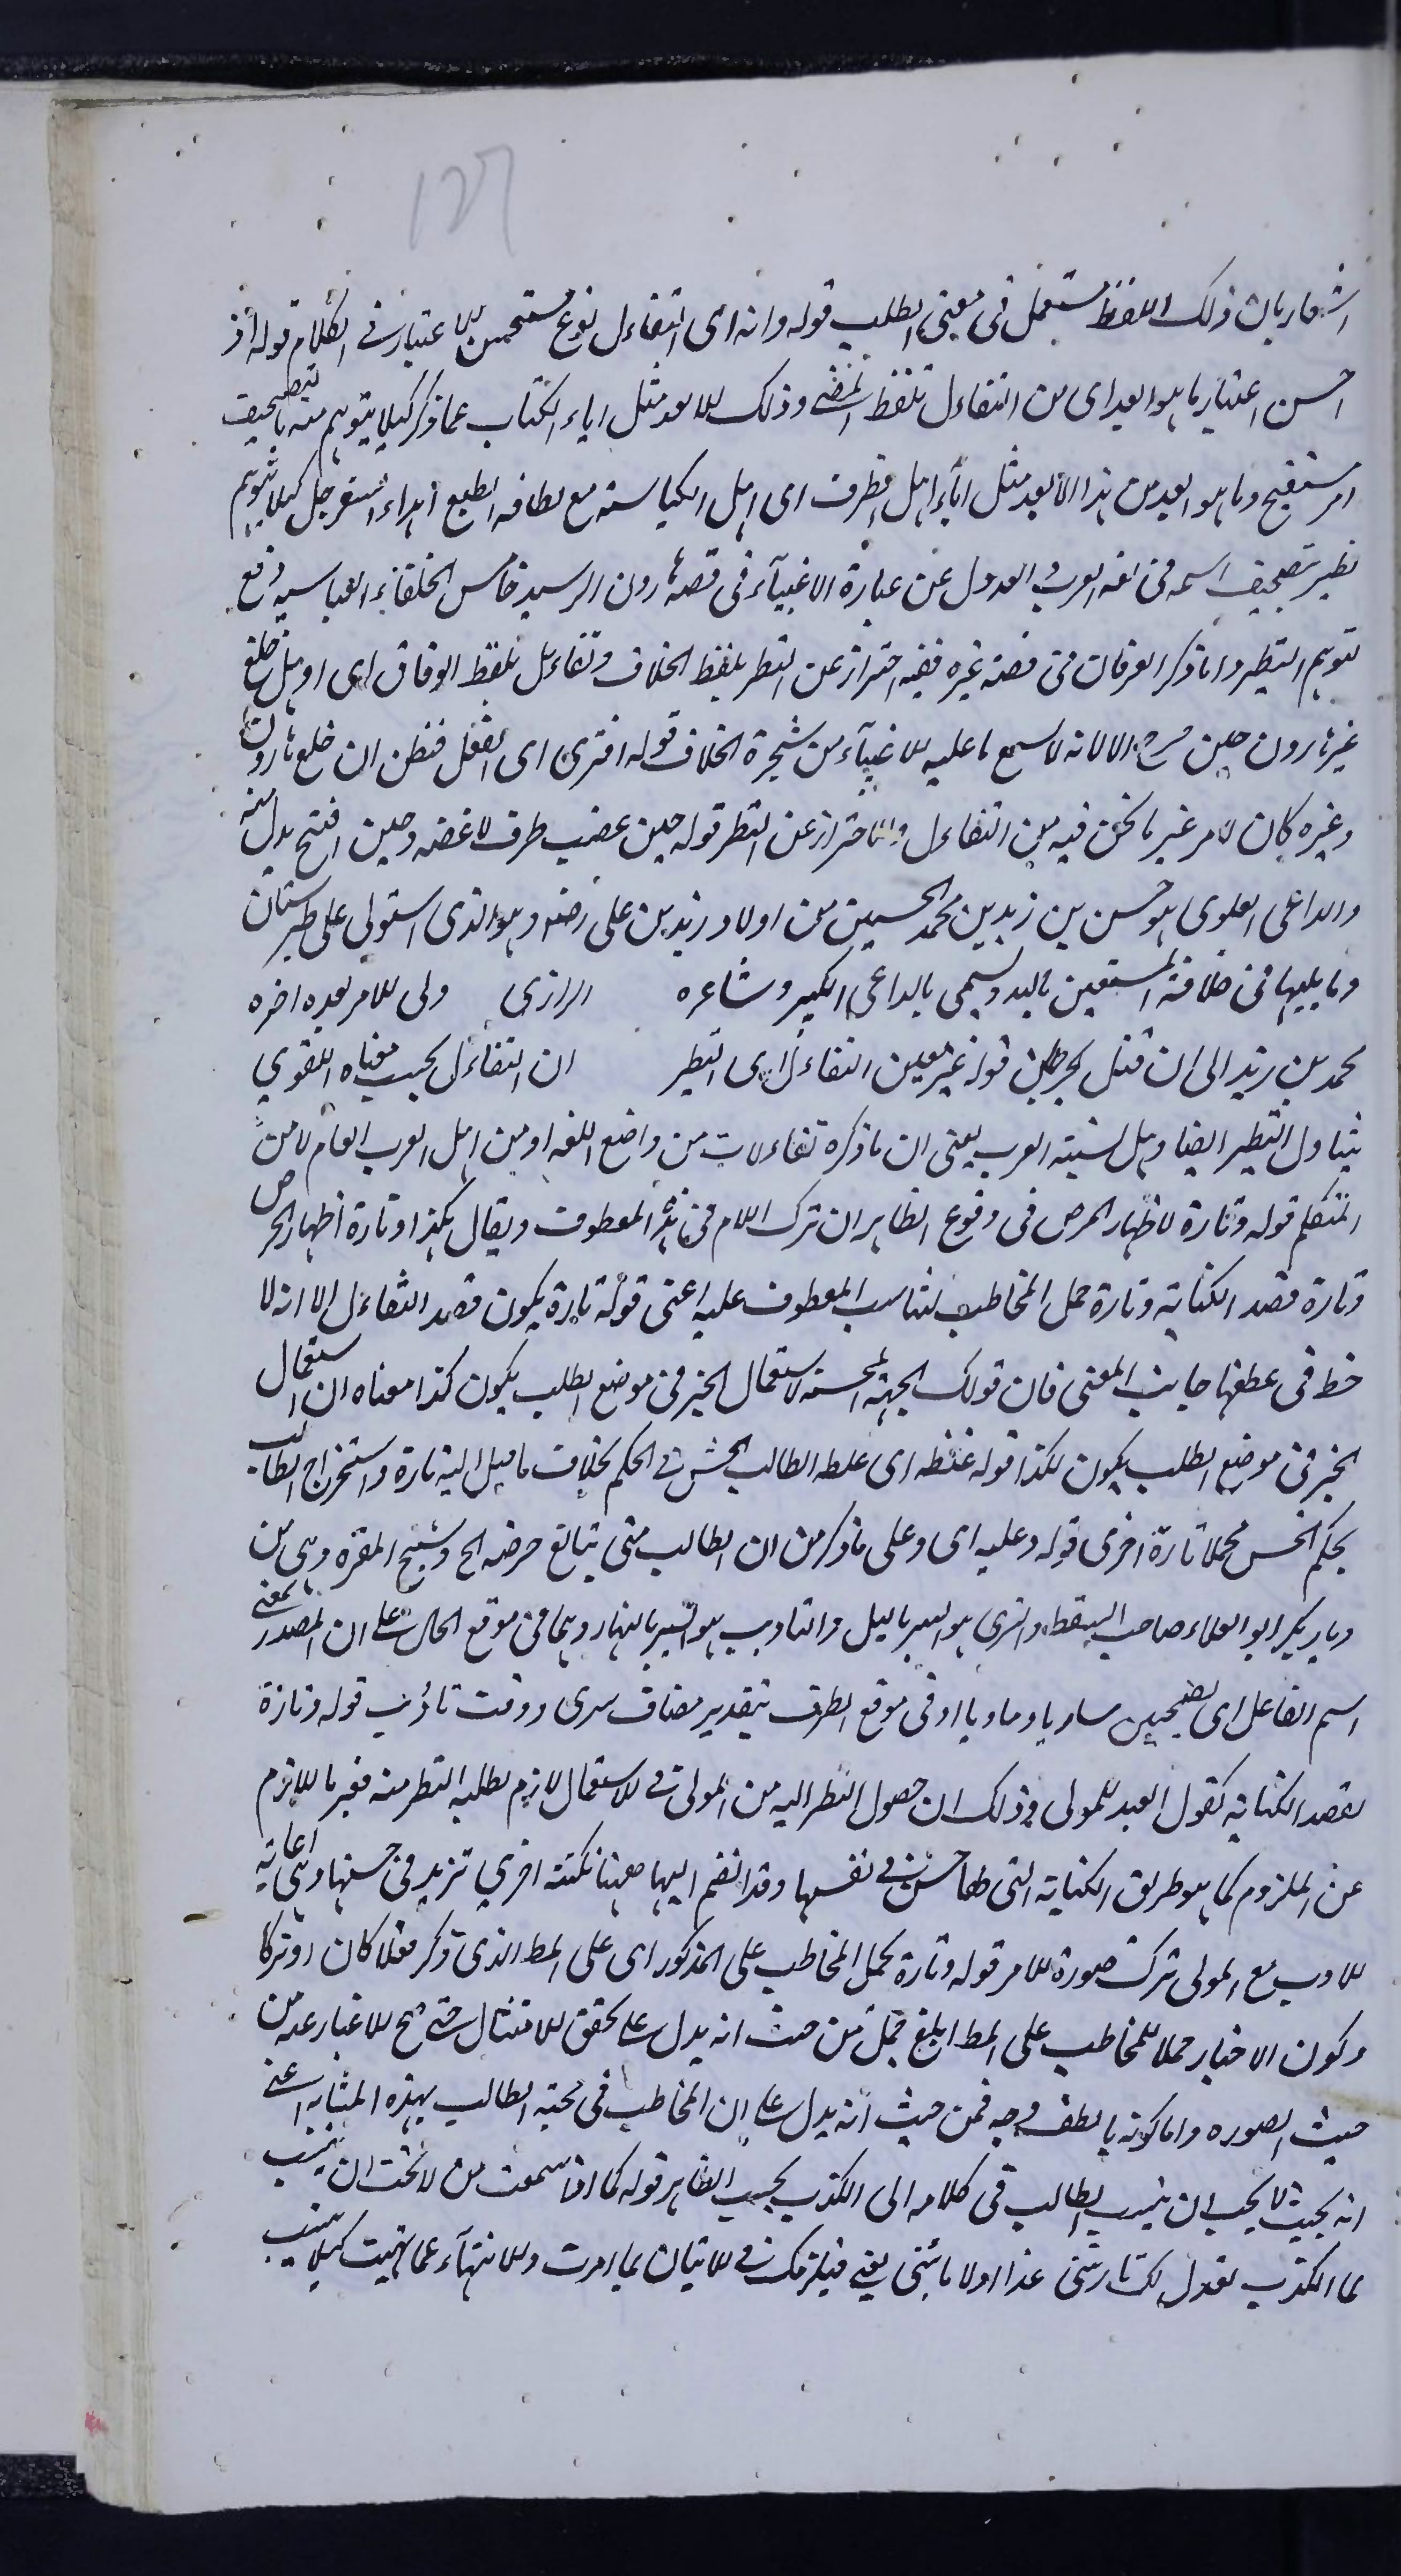 127
اشعار بان ذلك اللفظ مستعمل فى معنى الطلب قوله وانه اى التفاءل نوع مستحسن الاعتبار فى الكلام قوله اذ
احسن اعتبار ما هو ابعد اى من التفاءل تلفظ المضى وذلك الابعد مثل اباء الكتاب عما ذكر كيلا يتوهم منه بالتصحيف
امر مستقبح وما هو ابعد من هذا الابعد مثل اباء اهل الظرف اى اهل الكياسة مع لطافة الطبع اهداء السفرجل كيلا يتوهم
تطير بتصحيف اسمه فى لغة العرب والعدول عن عبارة الاغبياء فى قصة هارون الرسيد خامس الخلفاء العباسيه دفع
لتوهم التطير واما ذكر العرفان فى قصة غيره ففيه احتراز عن التطير بلفظ الخلاف وتفاءل بلفظ الوفاق اى او هل خلع
غير هارون حين الا لانه لا سمع ما عليه الاغبياء من شجرة الخلاف قوله افترى اى اتظن فتظن ان خلع هارون
وغيره كان لامر غير ما نحن فيه من التفاءل والاحتراز عن التطير قوله حين عضب طرف لا غضه وحين افتتح بدل منه
والداعى العلوى هو حسن بن زيد بن محمد الحسين من اولاد زيد بن على رضه وهو الذى استولى على طبرستان
وما يليها فى خلافة المستعين بالله ويسمى بالداعى الكبير وشاعره الرازى ولى الامر بعده اخوه
محمد بن زيد الى ان قتل بجرجان قوله غير معين التفاءل اى التطير ان التفاءل بحسب معناه اللغوي
يتناول التطير ايضا وهل لسنة العرب يعنى ان ما ذكره تفاءلات من واضع اللغه او من اهل العرب العام لا من
المتكلم قوله وتارة لاظهار الحرص فى وقوع الظاهر ان ترك اللام فى هذا المعطوف ويقال هكذا وتارة اظهار الحرص
وتارة قصد الكناية وتارة حمل المخاطب لتناسب المعطوف عليه اعنى قوله تارة يكون قصد التفاءل الا انه لا
حظ فى عطفها جانب المعنى فان قولك الجهة المحسنة لاستعمال الخبر فى موضع الطلب يكون كذا معناه ان استعمال
الخبر فى موضع الطلب يكون لكذا قوله غلطه اى غلطه الطالب الحس فى الحكم بخلاف ما ميل اليه تارة واستخراج الطالب
بحكم الحس محملا تارة اخرى قوله وعليه اى وعلى ما ذكر من ان الطالب متى تبالغ حرضه الح وشيخ المعرة وهى من
ديار بكر ابو العلاء صاحب السقط والسرى هو السير بالليل والتاويب هو السير بالنهار وهما فى موقع الحال على ان المصدر بمعنى
اسم الفاعل اى يصحبين ساريا وماوبا او فى موقع الظرف بتقدير مضاف سرى ووقت تاؤب قوله وتارة
لقصد الكناية كقول العبد للمولى وذلك ان حصول النظر اليه من المولى فى الاستعمال لازم لطلبه النظر منه فعبر باللازم
عن الملزوم كما هو طريق الكناية التى لها حسن فى نفسها وقد انضم اليها ههنا نكتة اخرى تزيد فى حسنها وهى رعاية
الادب مع المولى بترك صورة الامر قوله وتارة بحمل المخاطب على المذكور اى على المط الذى ذكر فعلا كان او تركا
وكون الاخبار حملا للمخاطب على المط ابلغ حمل من حيث انه يدل على تحقق الامتثال حتى صح الاخبار عنه من
حيث الصوره واما كونه بالطف وجه فمن حيث انه يدل على ان المخاطب فى محبة الطالب بهذه المثابه اعنى
انه بحيث لا يحب ان ينسب الطالب فى كلامه الى الكذب بحسب الظاهر قوله كما اذا سمعت من لا تحب ان ينسب
لما الكذب يقول لك تارتنى غدا اولا تاتنى يعنى فيلزمك فى الاتيان بما امرت والانتهاء عما نهيت كيلا ينسب